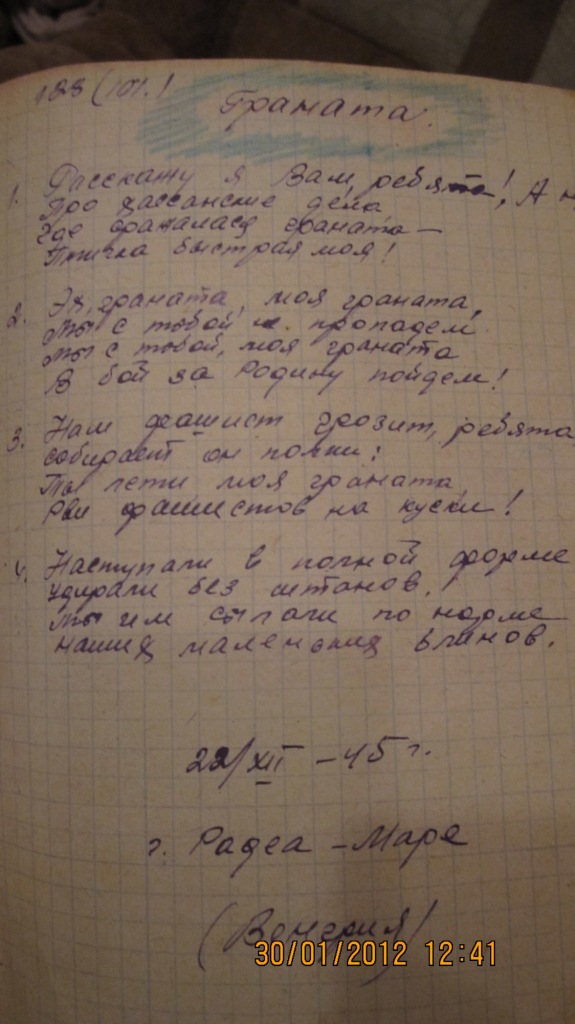 188 (101.)
Граната.
1. Расскажу я Вам, ребята!, А н
Про хассанские дела
Где сражалась граната —
Птичка быстрая моя!
2. Эх, граната, моя граната,
Мы с тобой не пропадем
Мы с тобой, моя граната
В бой за Родину пойдем!
3. Нам фашист грозит, ребята,
собирает он полки;
Ты лети моя граната,
Рви фашистов на куски!
4. Наступали в полной форме
Удирали без штанов,
Мы им сыпали по норме
Наших маленьких блинов.
22/XII – 45 г.
г. Радса – Маре
(Венгрия)
30/01/2012 12:41